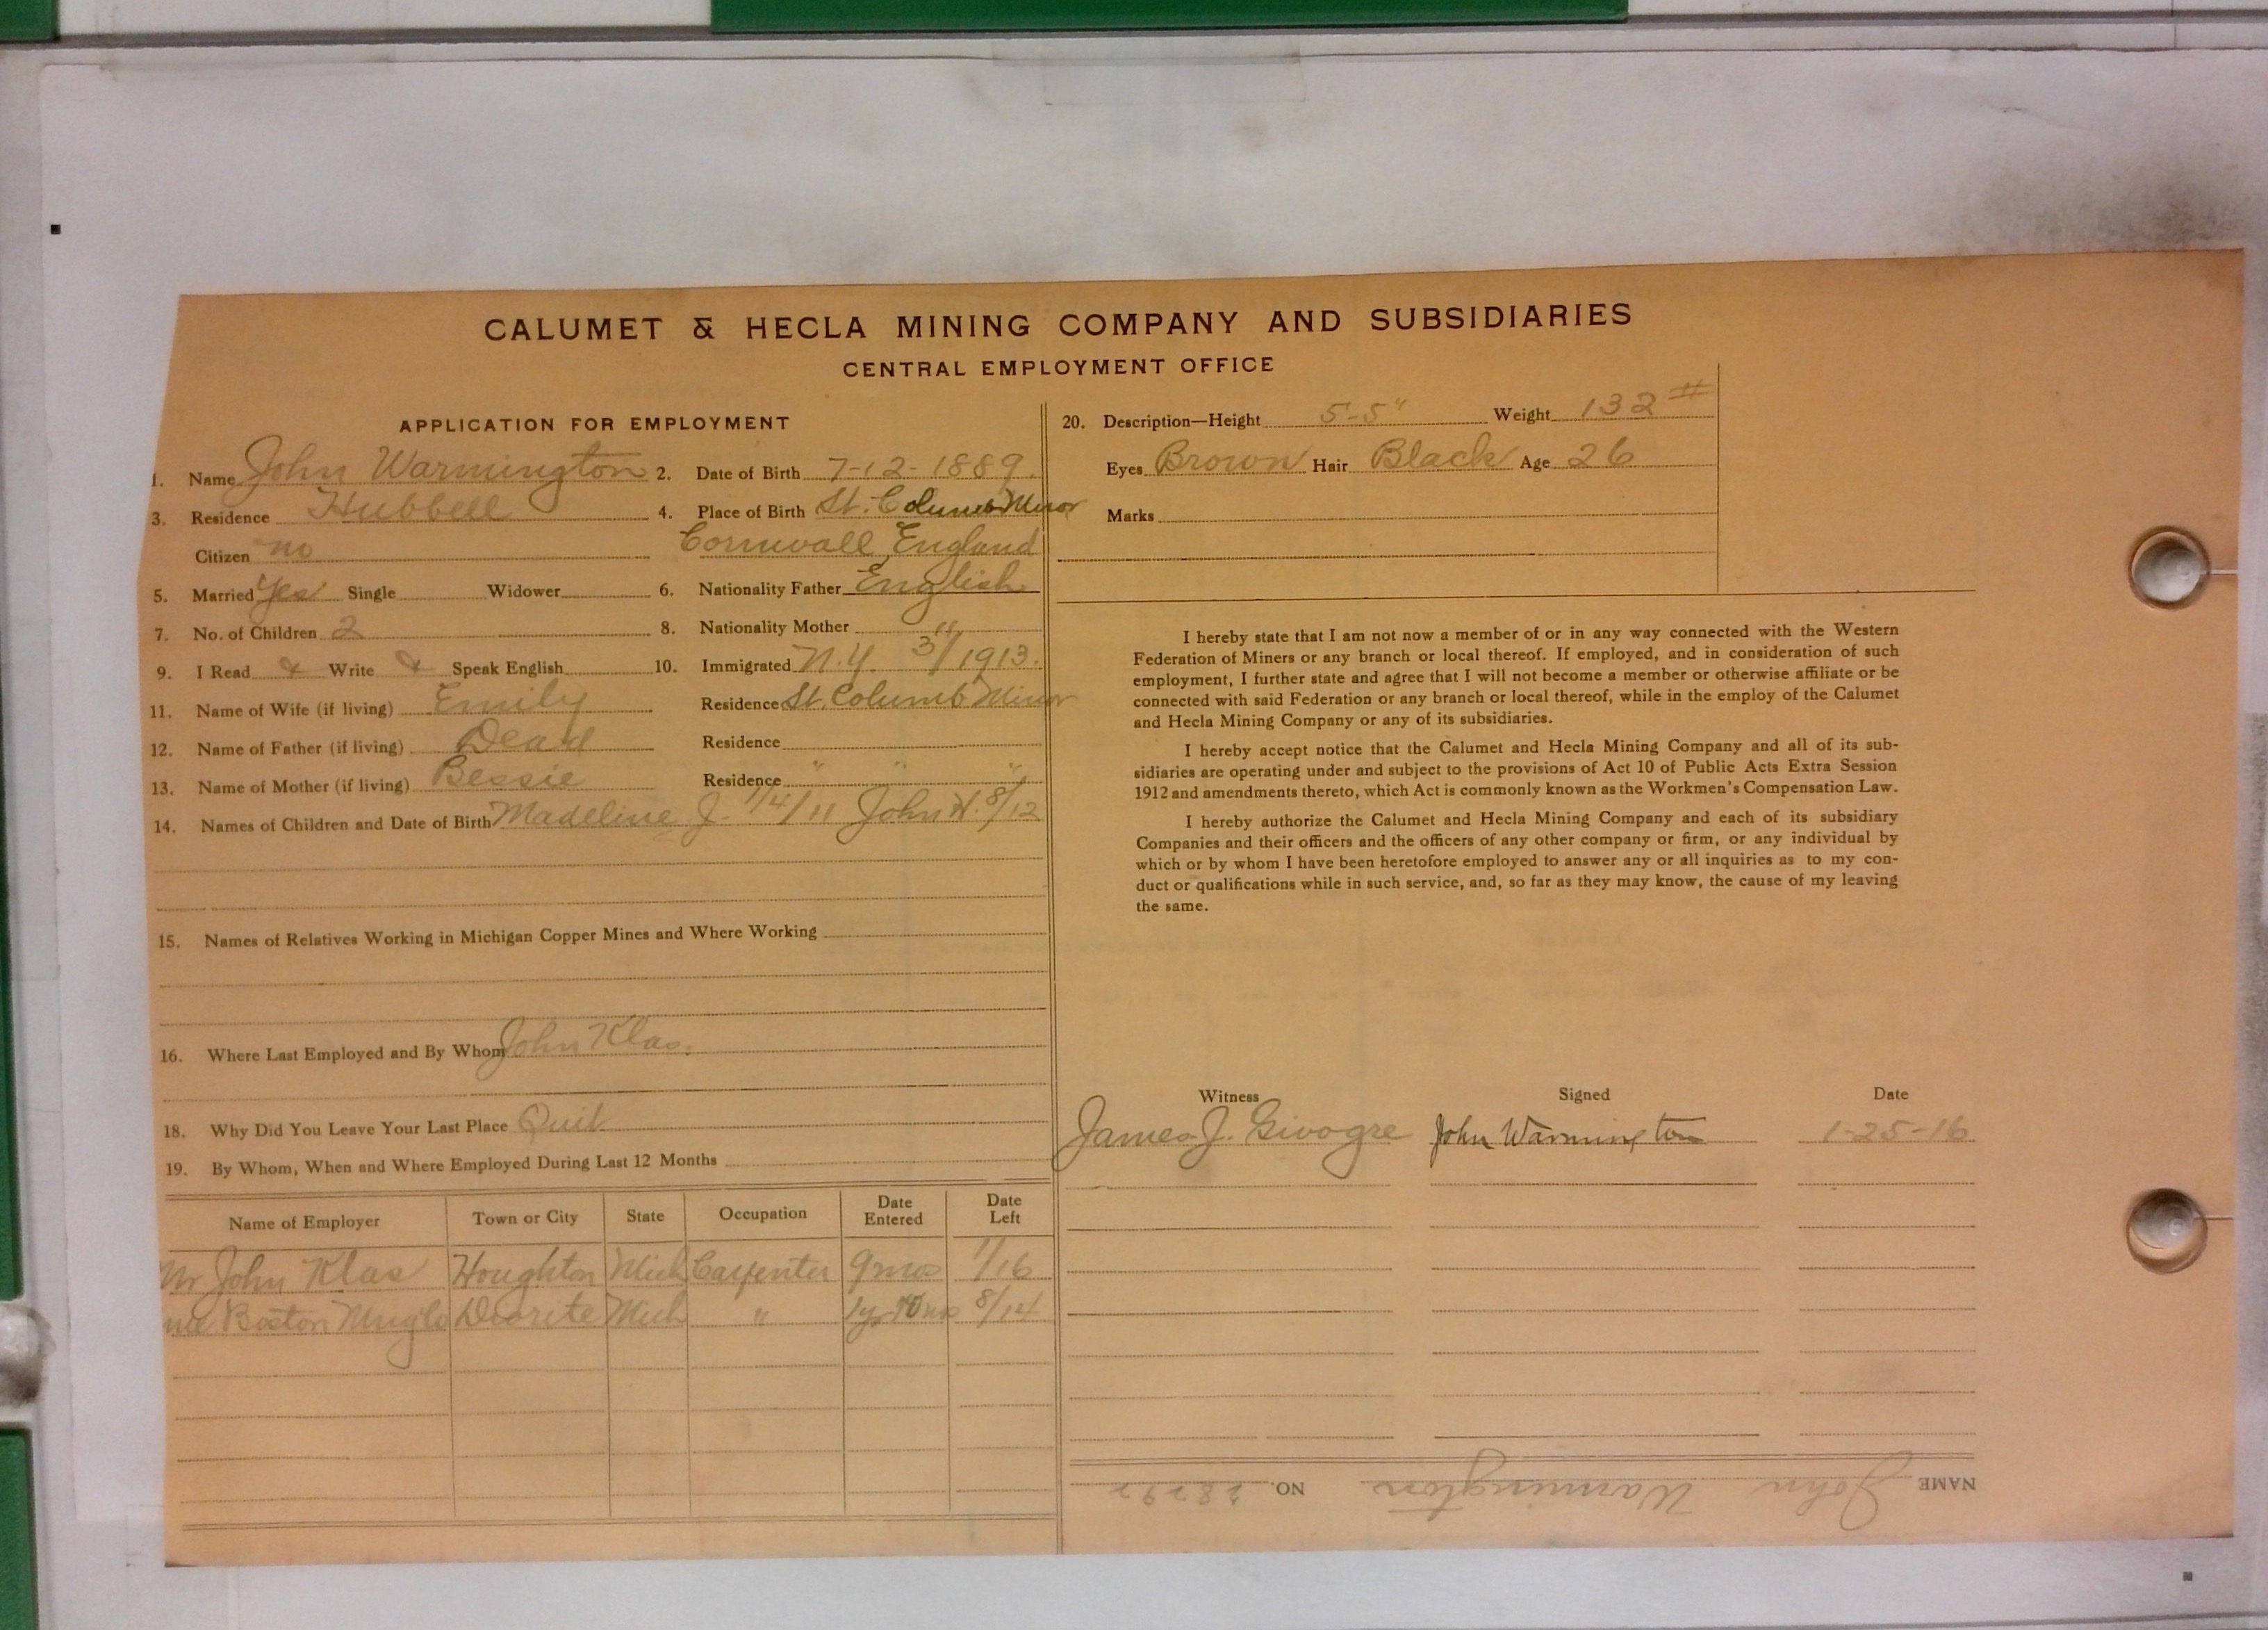 CALUMET & HECLA MINING COMPANY AND SUBSIDIARIES
CENTRAL EMPLOYMENT OFFICE
APPLICATION FOR EMPLOYMENT
1. Name John Warmington 2. Date of Birth 7-12-1889.
3. Residence Hubbell 4. Place of Birth St. Columb Minor
Citizen no Cornwall, England
5. Married Yes Single Widower 6. Nationality Father English
7. No. of Children 2 8. Nationality Mother "
9. I Read & Write & Speak English 10. Immigrated N.Y. 3/1913.
11. Name of Wife (if living) Emily Residence St. Columb Minor
12. Name of Father (if living) Dead Residence
13. Name of Mother (if living) Bessie Residence " " "
14. Names of Children and Date of Birth Madeline J. 1/4/11 John H. 8/12
15. Names of Relatives Working in Michigan Copper Mines and Where Working
16. Where Last Employed and By Whom John Klas.
18. Why Did You Leave Your Last Place Quit
19. By Whom, When and Where Employed During Last 12 Months
Name of Employer Town or City State Occupation Date Entered Date Left
Mr John Klas Houghton Mich Carpenter 9 mos 1/16
Boston Diorite Mich " 8/14
20. Description—Height 5-5" Weight 132 #
Eyes Brown Hair Black Age 26
Marks
I hereby state that I am not now a member of or in any way connected with the Western
Federation of Miners or any branch or local thereof. If employed, and in consideration of such
employment, I further state and agree that I will not become a member or otherwise affiliate or be
connected with said Federation or any branch or local thereof, while in the employ of the Calumet
and Hecla Mining Company or any of its subsidiaries.
I hereby accept notice that the Calumet and Hecla Mining Company and all of its sub-
sidiaries are operating under and subject to the provisions of Act 10 of Public Acts Extra Session
1912 and amendments thereto, which Act is commonly known as the Workmen's Compensation Law.
I hereby authorize the Calumet and Hecla Mining Company and each of its subsidiary
Companies and their officers and the officers of any other company or firm, or any individual by
which or by whom I have been heretofore employed to answer any or all inquiries as to my con-
duct or qualifications while in such service, and, so far as they may know, the cause of my leaving
the same.
Witness Signed Date
James J. John Warmington 1-25-16
NAME John Warmington NO. 28292